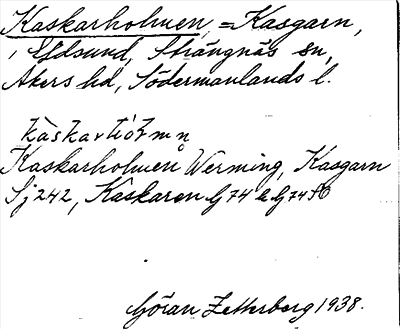 Kaskarholmen, = Kasgarn,
i Eldsund, Strängnäs sn,
Åkers hd, Södermanlands l.
Kaskarholmen Werming, Kasgarn
Sj 242, Kaskaren G 74 G 74
Göran Zetterberg 1938.